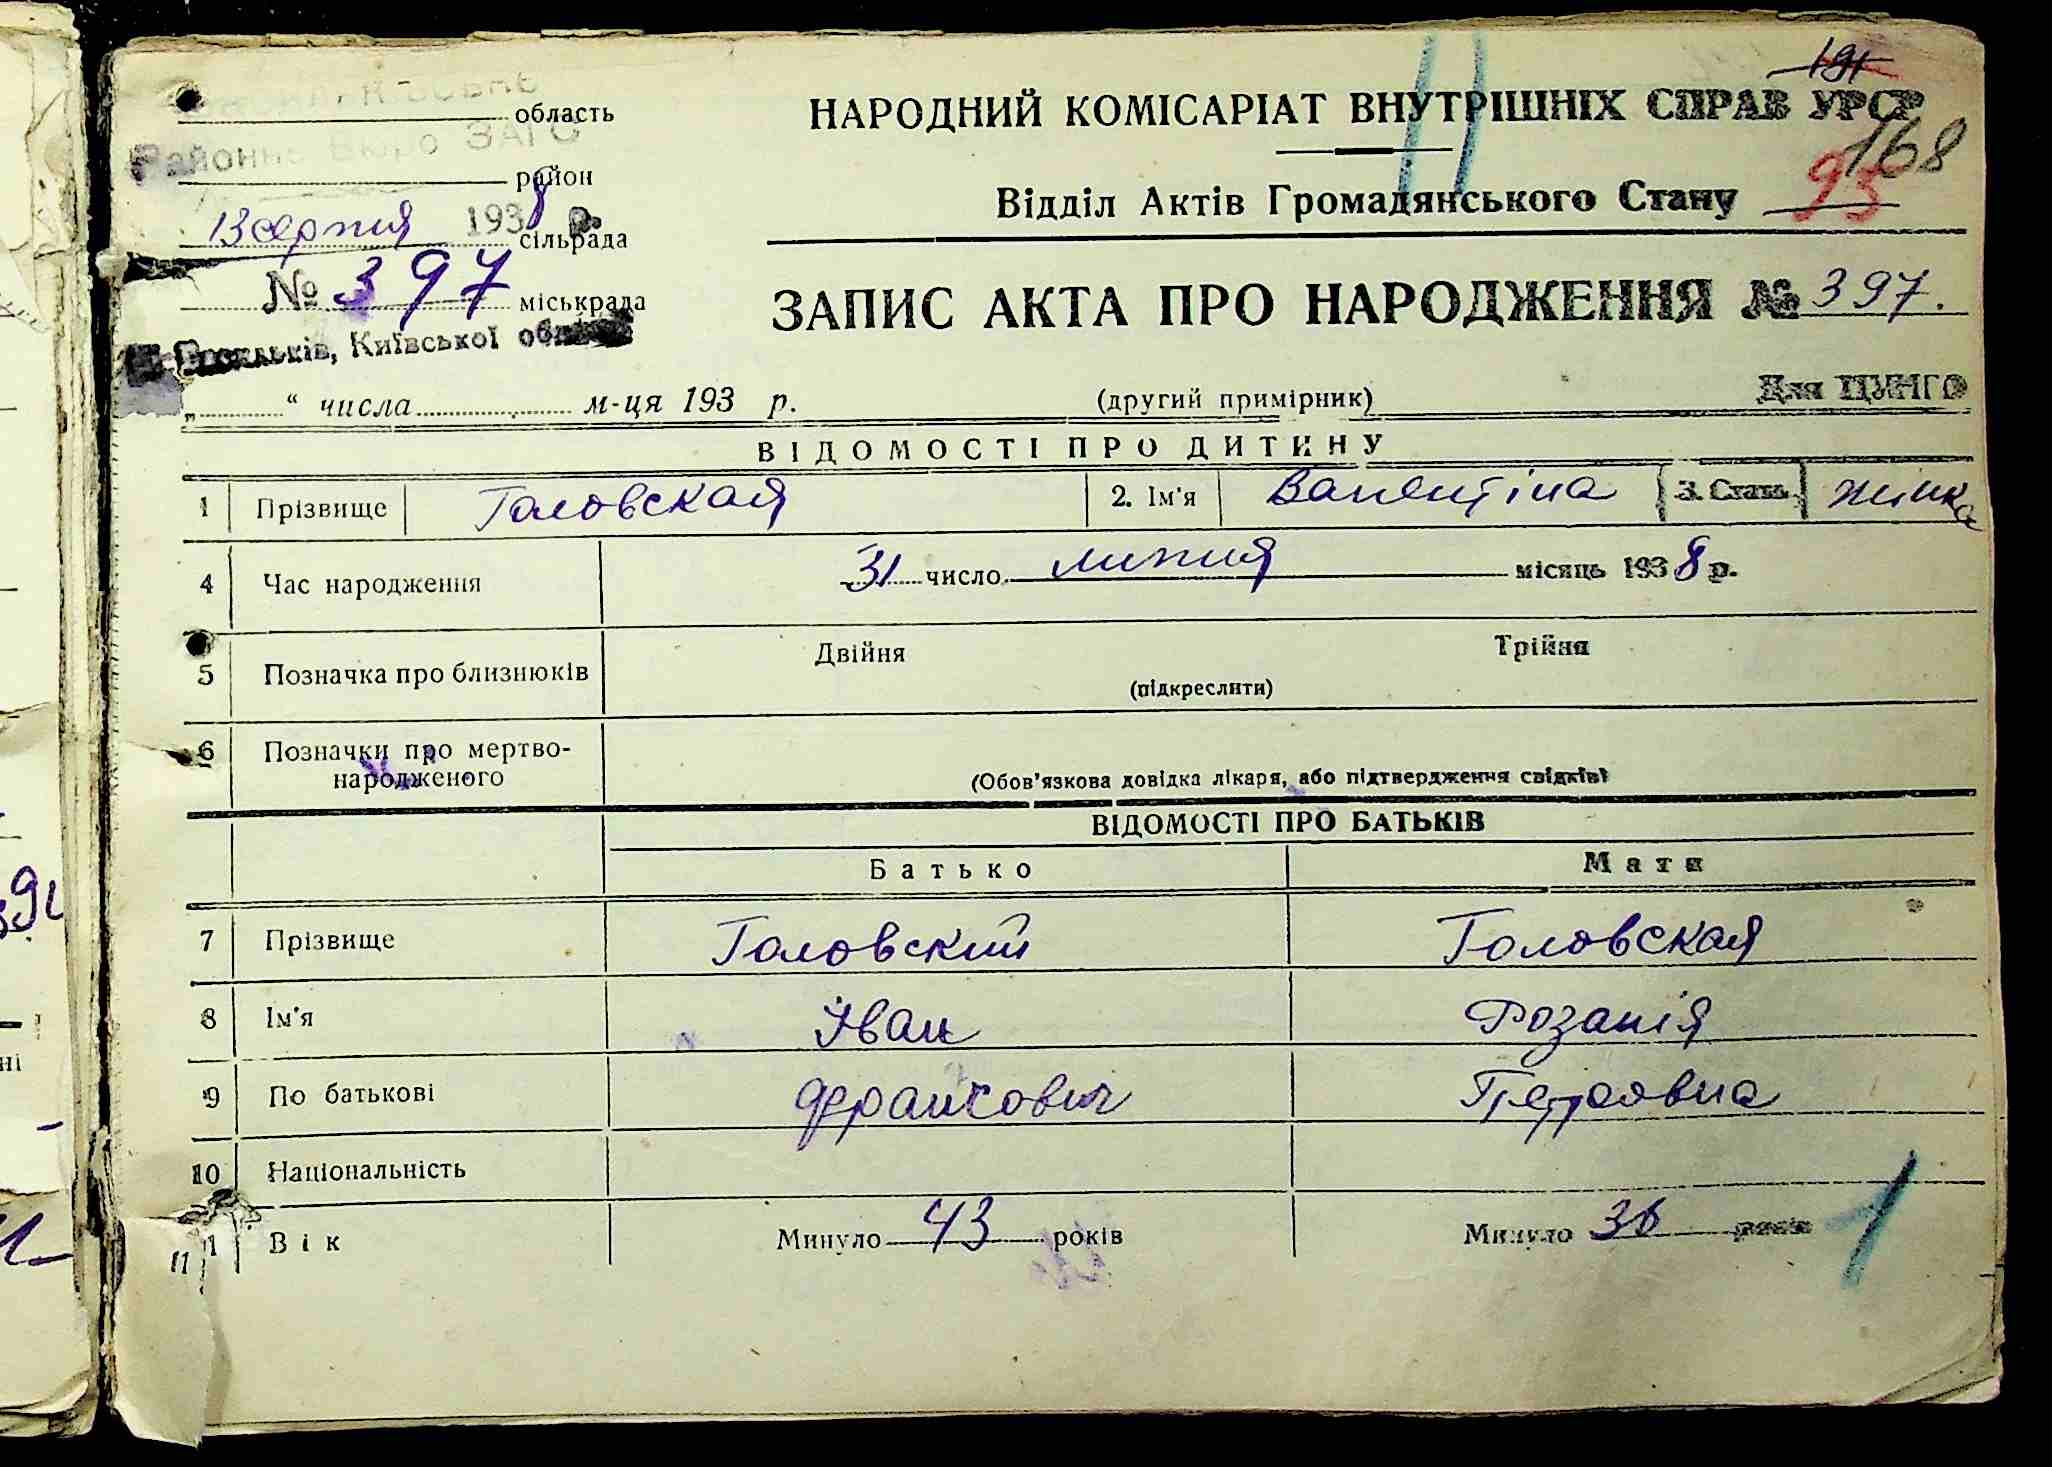 191
область
НАРОДНИЙ КОМІСАРІАТ ВНУТРІШНІХ СПРАВ УРСР
168
Районне Бюро ЗАГС
район
Відділ Актів Громадянського Стану
93
13 серпня 1938 р.
сільрада
№ 397
міськрада
ЗАПИС АКТА ПРО НАРОДЖЕННЯ № 397.
Київської
„ “ числа м-ця 193 р.
(другий примірник)
Для ЦУНГО
ВІДОМОСТІ ПРО ДИТИНУ
1 Прізвище Головская 2. Ім'я Валентіна 3. Стать жінка
4 Час народження 31 число липня місяць 1938 р.
5 Позначка про близнюків Двійня Трійня
(підкреслити)
6 Позначки про мертво-
народженого (Обов'язкова довідка лікаря, або підтвердження свідків)
ВІДОМОСТІ ПРО БАТЬКІВ
Батько Мати
7 Прізвище Головский Головская
8 Ім'я Іван Розалія
9 По батькові Франсович Петровна
10 Національність
11 Вік Минуло 43 років Минуло 36 років
11